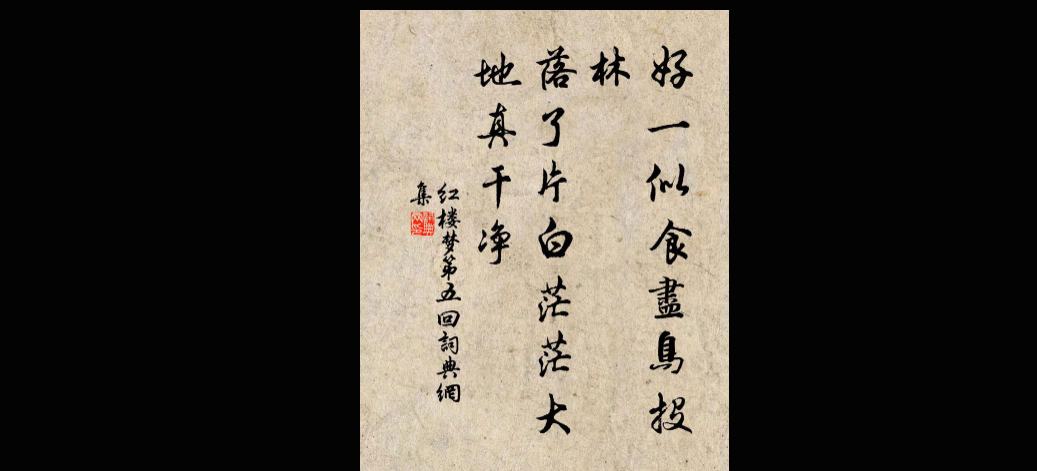 好一似食盡鳥投
林
落了片白茫茫大
地真干净
红楼梦第五回詞典網
集